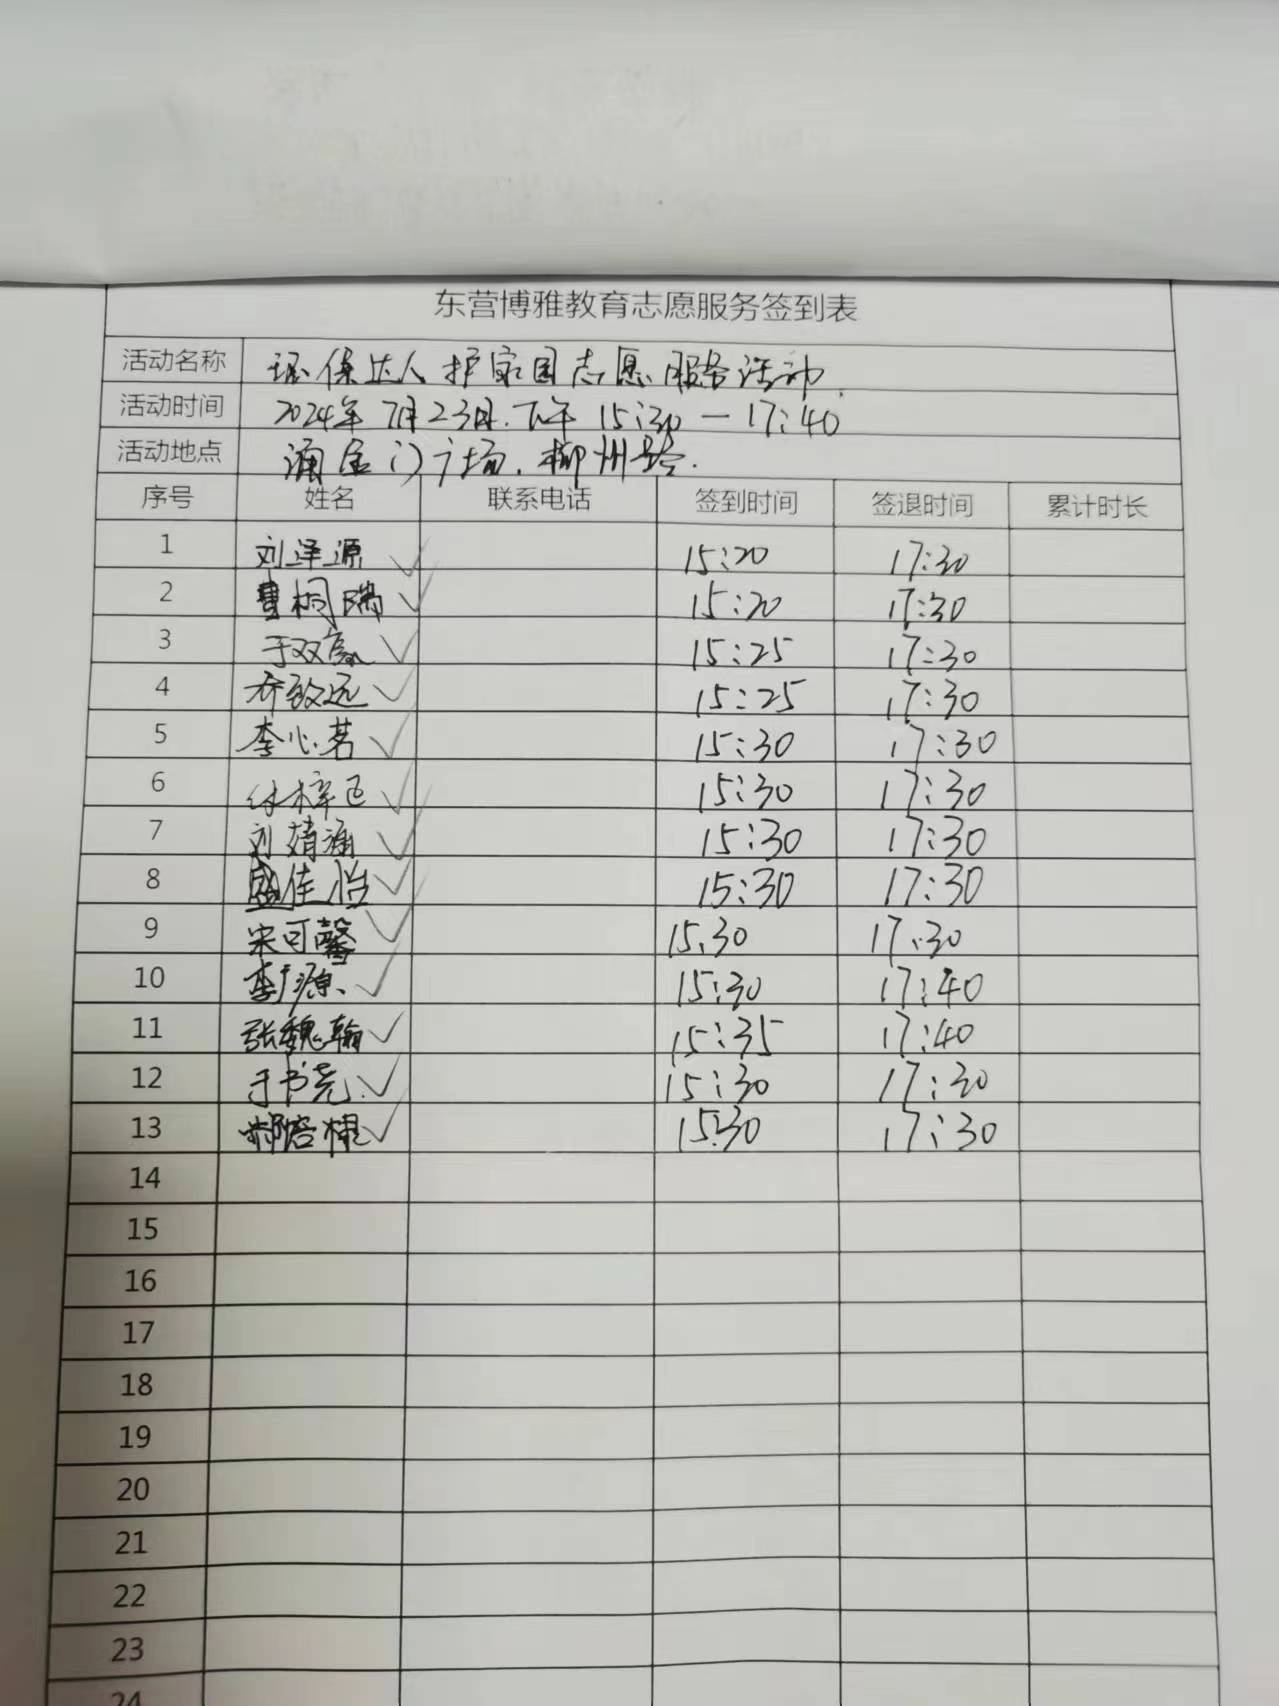 东营博雅教育志愿服务签到表
活动名称 环保达人护家园志愿服务活动.
活动时间 2024年7月23日.下午 15:30—17:40
活动地点 涌金门广场.柳州路.
序号 姓名 联系电话 签到时间 签退时间 累计时长
1 刘泽源 ✓ 15:20 17:30
2 曹桐瑞 ✓ 15:20 17:30
3 ✓ 15:25 17:30
4 乔致远 ✓ 15:25 17:30
5 李心茗 ✓ 15:30 17:30
6 ✓ 15:30 17:30
7 刘婧涵 ✓ 15:30 17:30
8 盛佳怡 ✓ 15:30 17:30
9 宋可馨 ✓ 15.30 17:30
10 李广源 ✓ 15:30 17:40
11 张魏翰 ✓ 15:35 17:40
12 于书尧 ✓ 15:30 17:30
13 ✓ 15:30 17:30
14
15
16
17
18
19
20
21
22
23
24